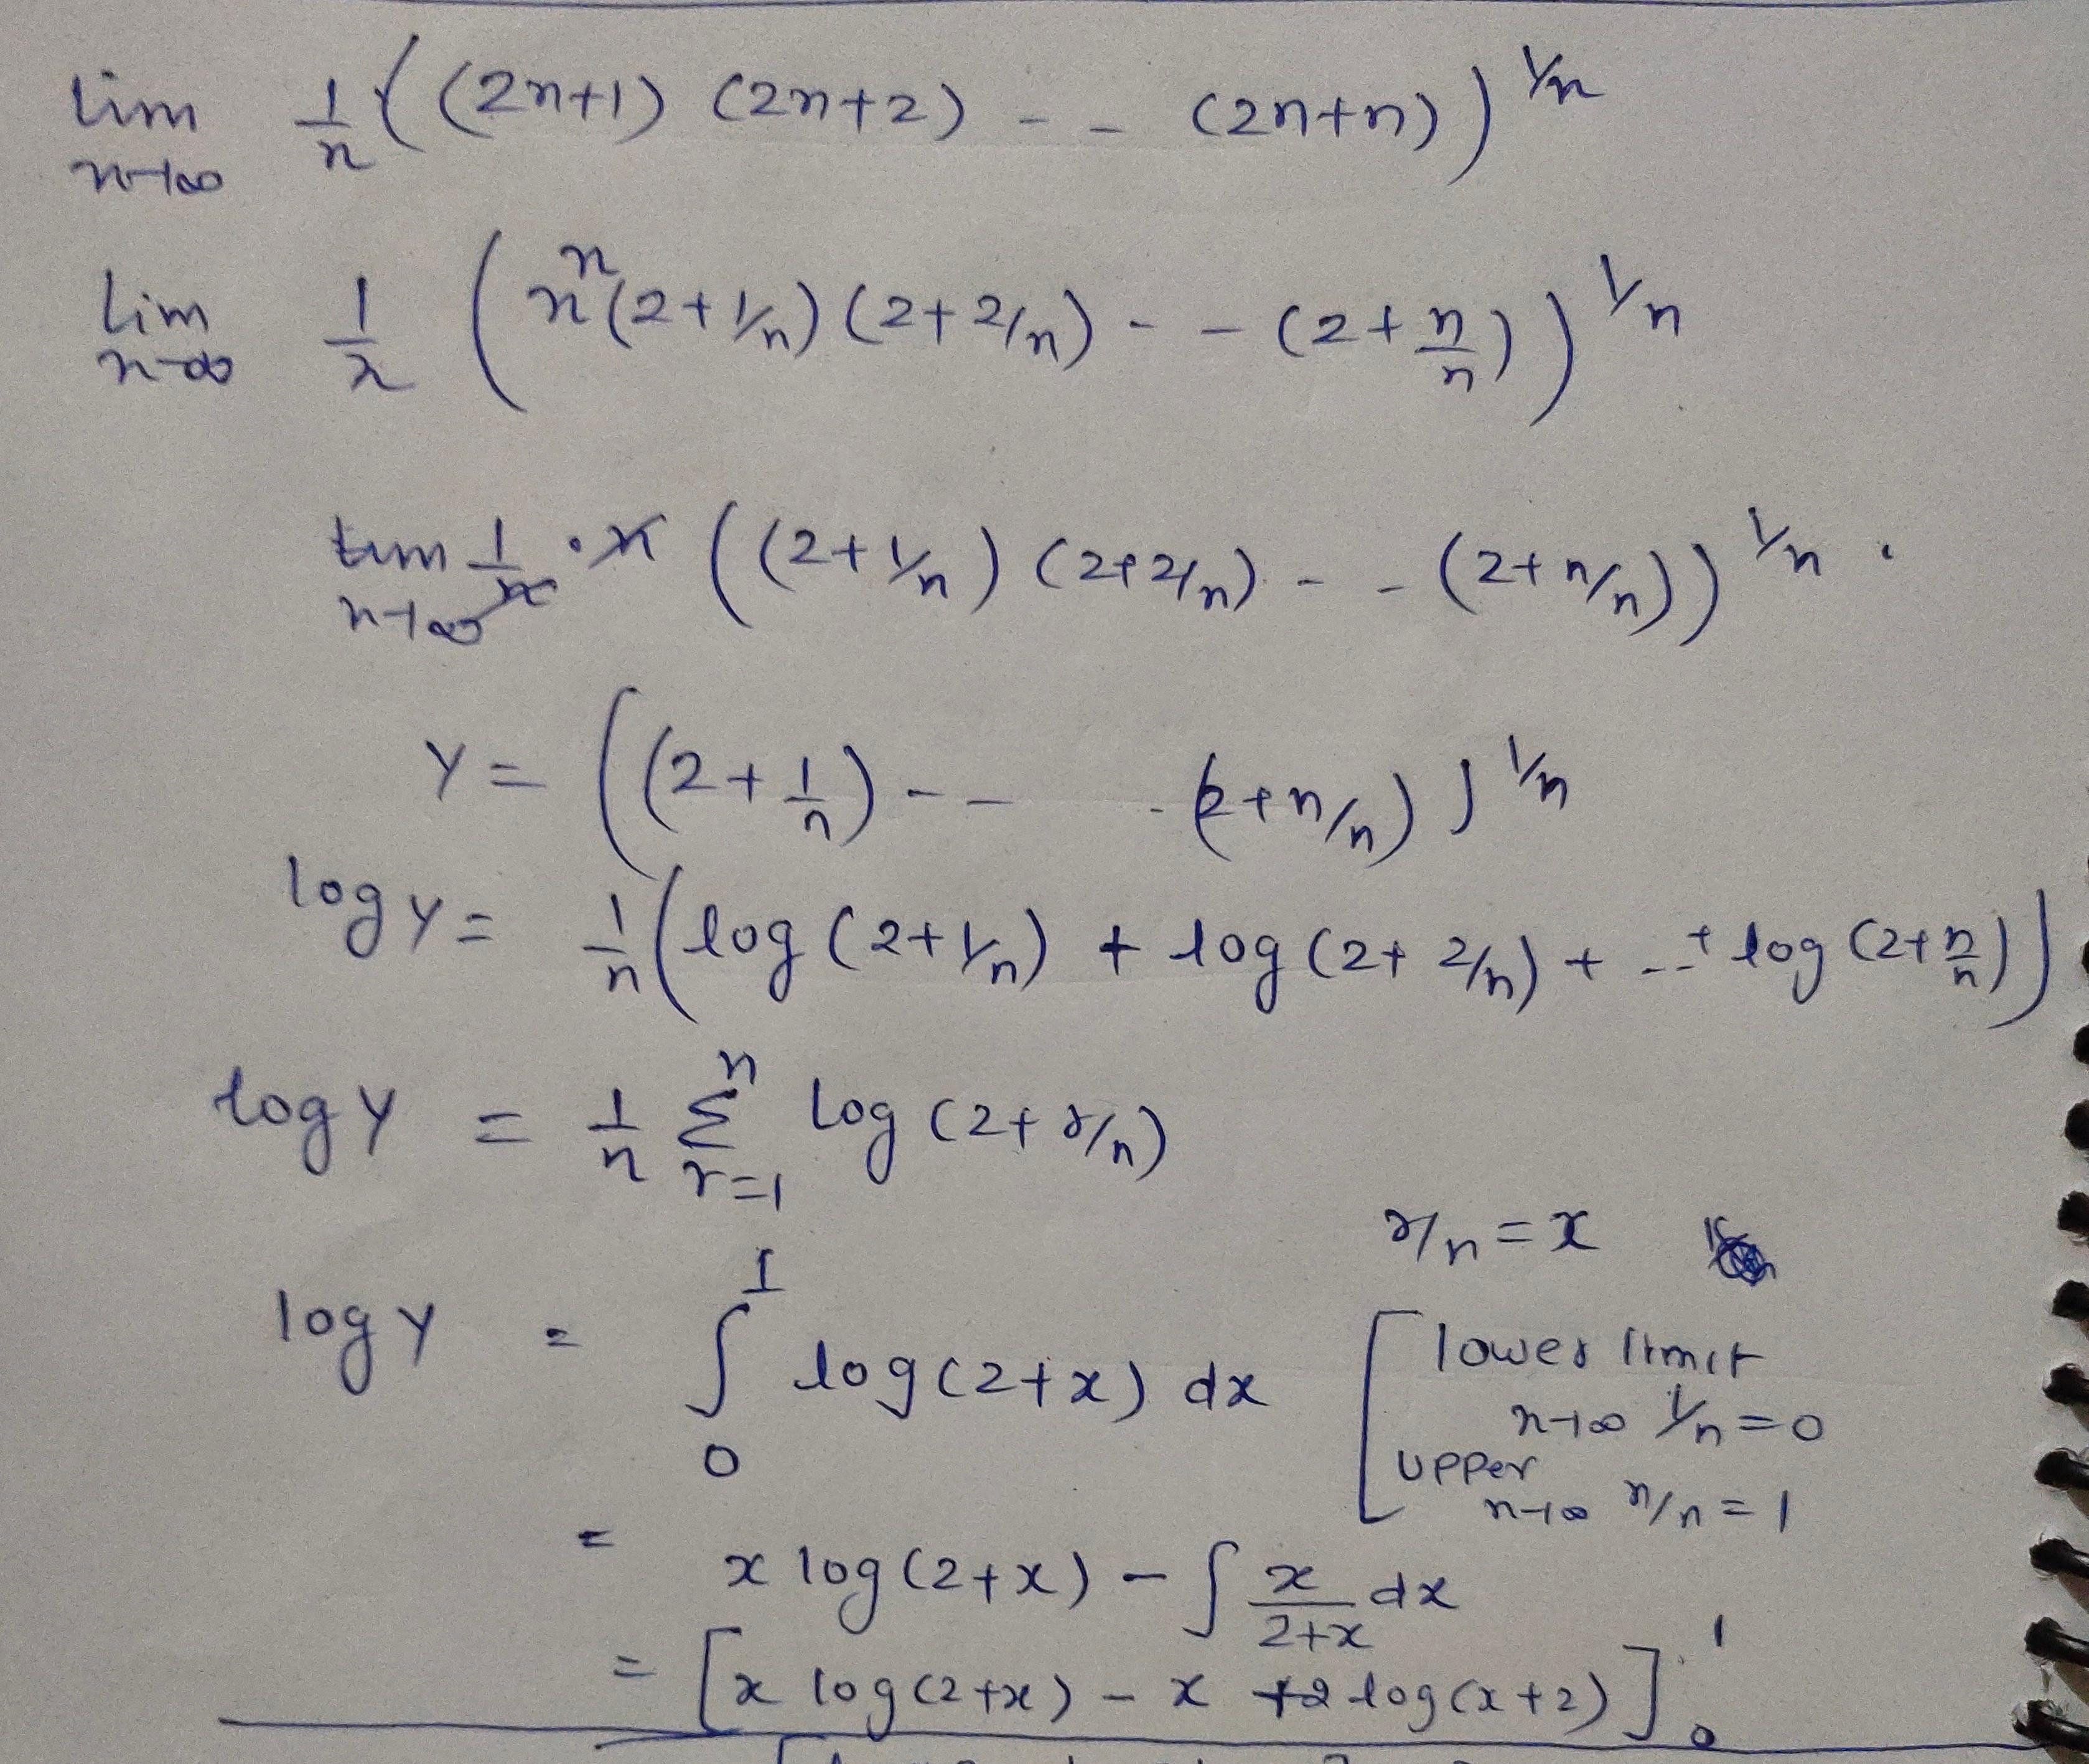 lim n→∞ 1/n ( (2n+1) (2n+2) - - (2n+n) )^1/n
lim n→∞ 1/n ( n^n (2+1/n) (2+2/n) - - (2+n/n) )^1/n
lim n→∞ 1/n · n ( (2+1/n) (2+2/n) - - (2+n/n) )^1/n .
Y = ( (2+1/n) - - - (2+n/n) )^1/n
log Y = 1/n ( log (2+1/n) + log (2+2/n) + --+ log (2+n/n) )
log Y = 1/n Σ_{r=1}^{n} log (2+r/n)
r/n = x
log Y = ∫_0^1 log (2+x) dx
[ lower limit
n→∞ 1/n = 0
upper
n→∞ n/n = 1
= x log (2+x) - ∫ x/(2+x) dx
= [ x log (2+x) - x +2 log (x+2) ]_0^1